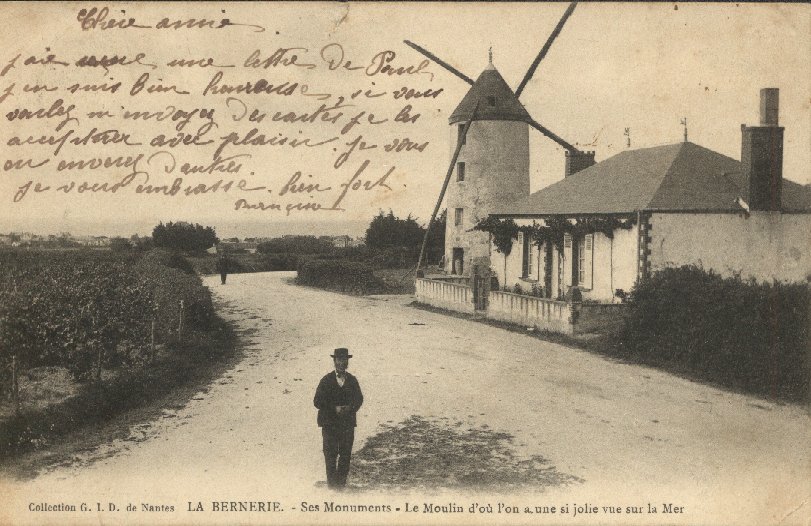 Chère annie
j'ai une lettre de Paul
j'en suis bien heureuse, si vous
voulez m'envoyez des cartes je les
accepterer avec plaisir. je vous
en enverez d'autres
je vous embrasse bien fort
Collection G. I. D. de Nantes LA BERNERIE. - Ses Monuments - Le Moulin d'où l'on a une si jolie vue sur la Mer